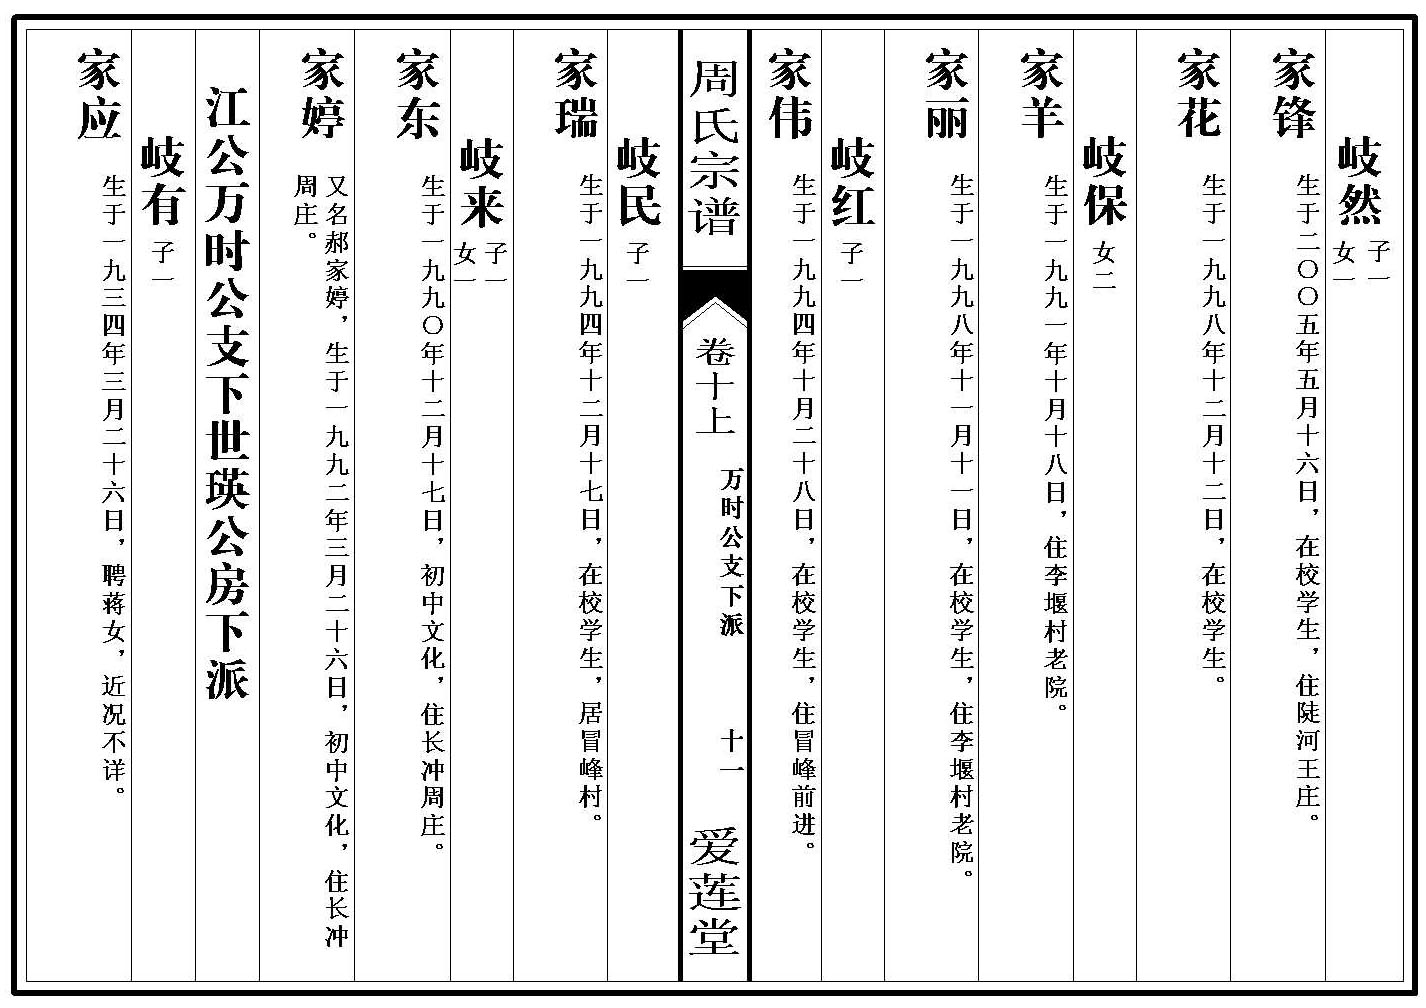 岐然 子一 女一
家锋 生于二〇〇五年五月十六日，在校学生，住陡河王庄。
家花 生于一九九八年十二月十二日，在校学生。
岐保 女二
家羊 生于一九九一年十月十八日，住李堰村老院。
家丽 生于一九九八年十一月十一日，在校学生，住李堰村老院。
岐红 子一
家伟 生于一九九四年十月二十八日，在校学生，住冒峰前进。
周氏宗谱
卷十上
万时公支下派
十一
爱莲堂
岐民 子一
家瑞 生于一九九四年十二月十七日，在校学生，居冒峰村。
岐来 子一 女一
家东 生于一九九〇年十二月十七日，初中文化，住长冲周庄。
家婷 又名郝家婷，生于一九九二年三月二十六日，初中文化，住长冲
周庄。
江公万时公支下世瑛公房下派
岐有 子一
家应 生于一九三四年三月二十六日，聘蒋女，近况不详。